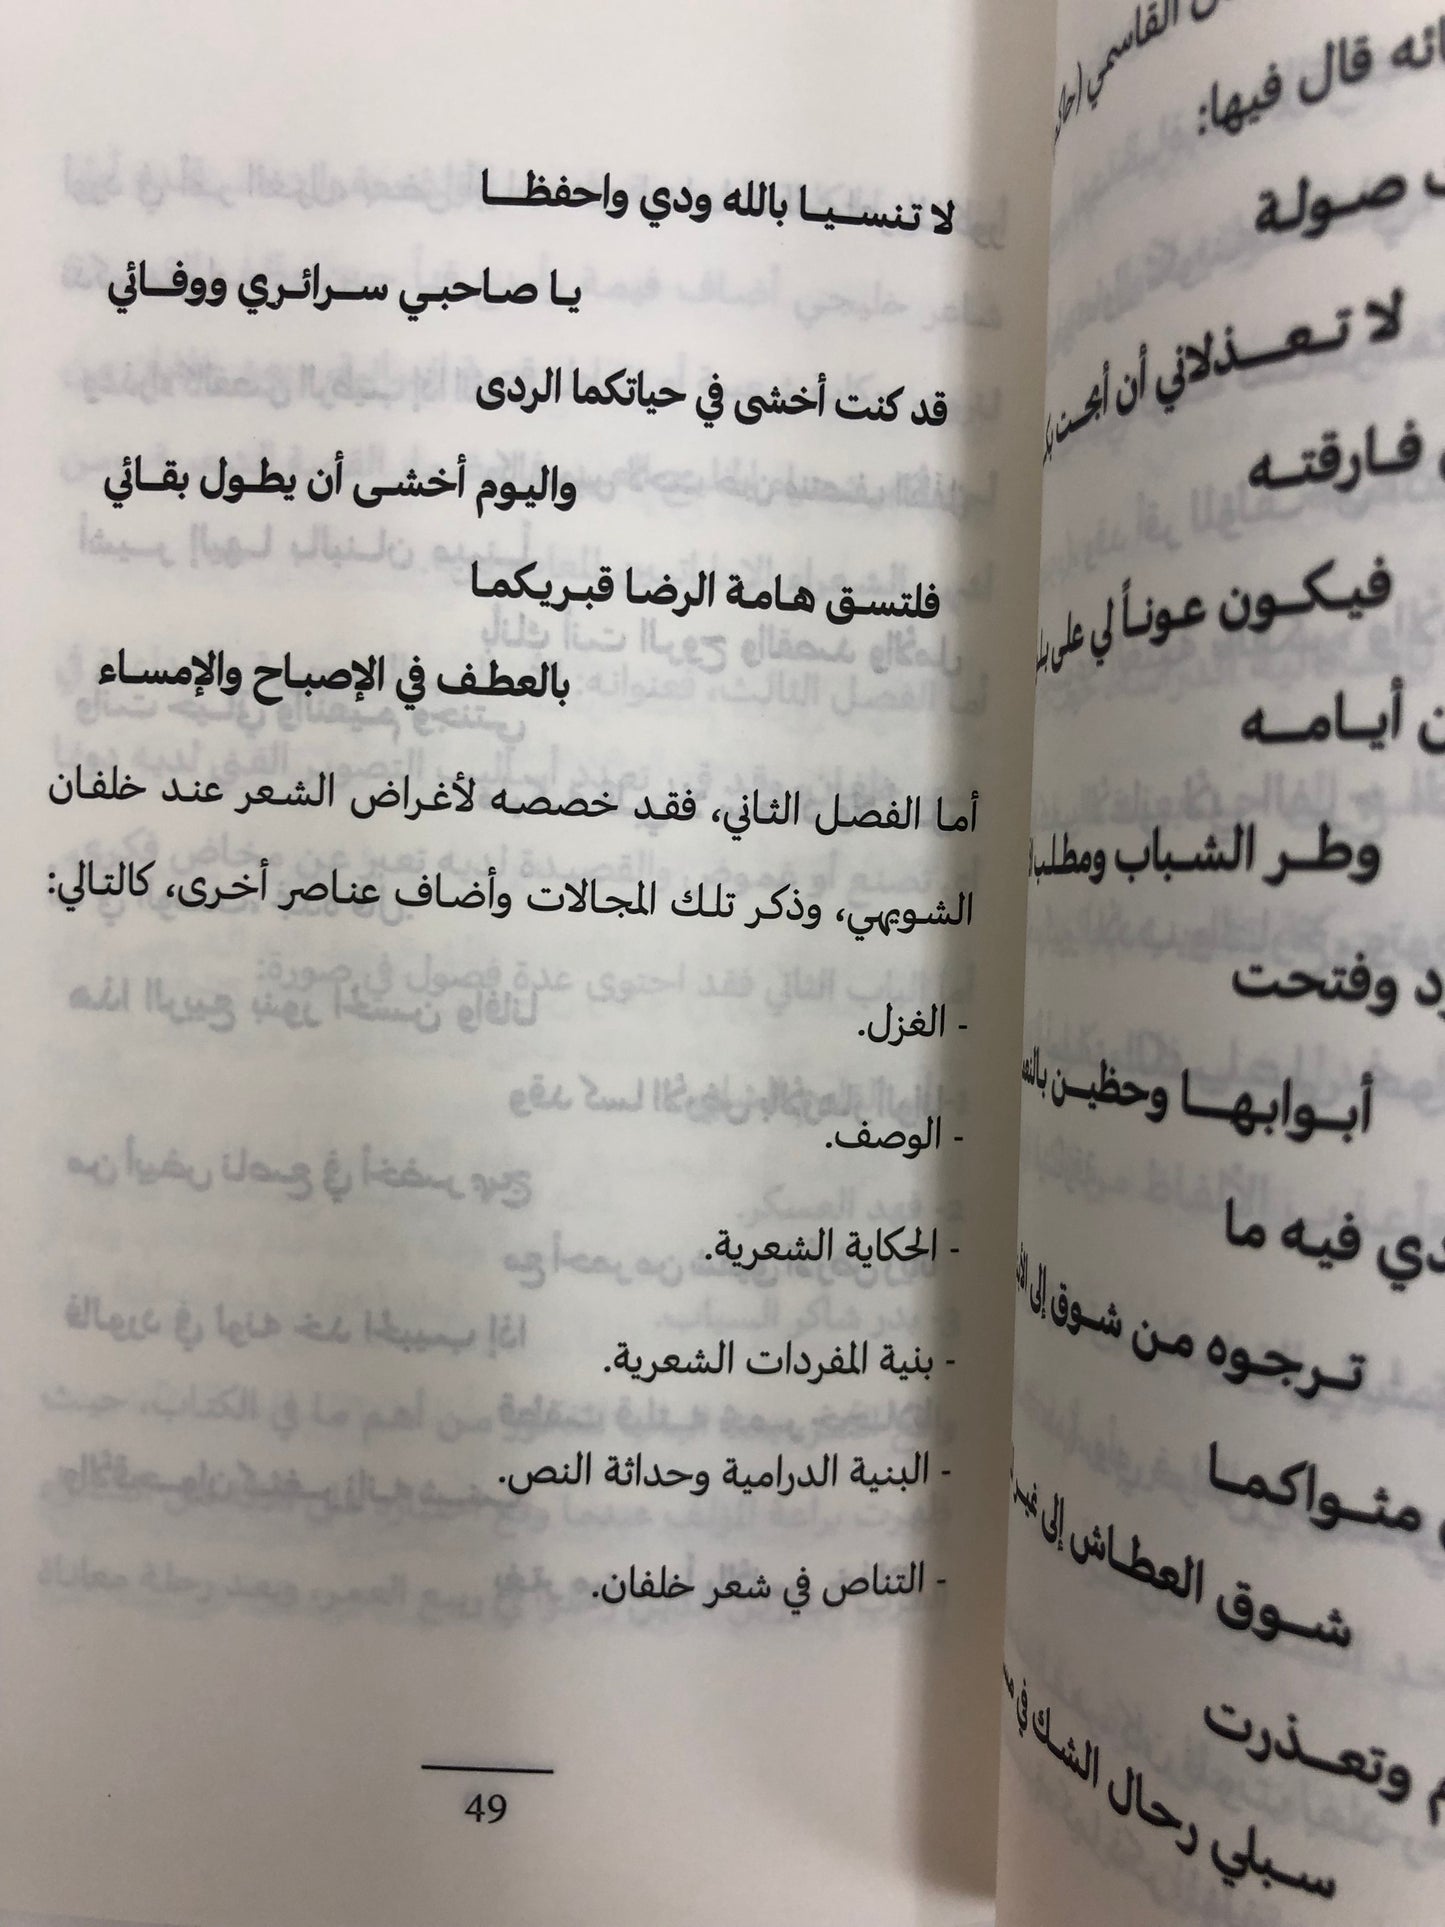 لا تنسيا بالله ودي واحفظا
يا صاحبي سرائري ووفائي
قد كنت أخشى في حياتكما الردى
واليوم أخشى أن يطول بقائي
فلتسق هامة الرضا قبريكما
بالعطف في الإصباح والإمساء
أما الفصل الثاني، فقد خصصه لأغراض الشعر عند خلفان
الشويهي، وذكر تلك المجالات وأضاف عناصر أخرى، كالتالي:
- الغزل.
- الوصف.
- الحكاية الشعرية.
- بنية المفردات الشعرية.
- البنية الدرامية وحداثة النص.
- التناص في شعر خلفان.
49
القاسمي
قال فيها:
صولة
لا تعذلاني أن أبحت
فارقته
فيكون عوناً لي على
أيامه
وطر الشباب ومطلب
وفتحت
أبوابها وحظين
فيه ما
ترجوه من شوق إلى
مثواكما
شوق العطاش إلى غير
وتعذرت
سبلي رحال الشك في